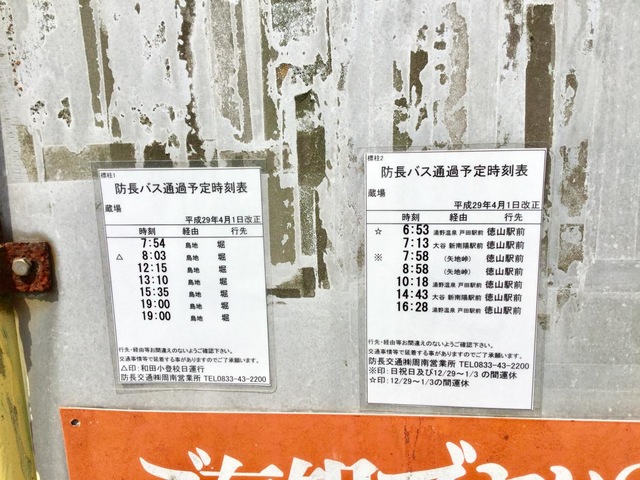 標柱1
防長バス通過予定時刻表
蔵場
平成29年4月1日改正
時刻 経由 行先
7:54 島地 堀
△ 8:03 島地 堀
12:15 島地 堀
13:10 島地 堀
15:35 島地 堀
19:00 島地 堀
19:00 島地 堀
行先・経由等お間違えのないようご確認下さい。
交通事情等で延着する事がありますのでご了承願います。
△印:和田小登校日運行
防長交通㈱周南営業所 TEL0833-43-2200
標柱2
防長バス通過予定時刻表
蔵場
平成29年4月1日改正
時刻 経由 行先
☆ 6:53 湯野温泉 戸田駅前 徳山駅前
7:13 大谷 新南陽駅前 徳山駅前
※ 7:58 (矢地峠) 徳山駅前
8:58 (矢地峠) 徳山駅前
10:18 湯野温泉 戸田駅前 徳山駅前
14:43 大谷 新南陽駅前 徳山駅前
16:28 湯野温泉 戸田駅前 徳山駅前
行先・経由等お間違えのないようご確認下さい。
交通事情等で延着する事がありますのでご了承願います。
防長交通㈱周南営業所 TEL0833-43-2200
※印:日祝日及び12/29～1/3 の間運休
☆印:12/29～1/3の間運休